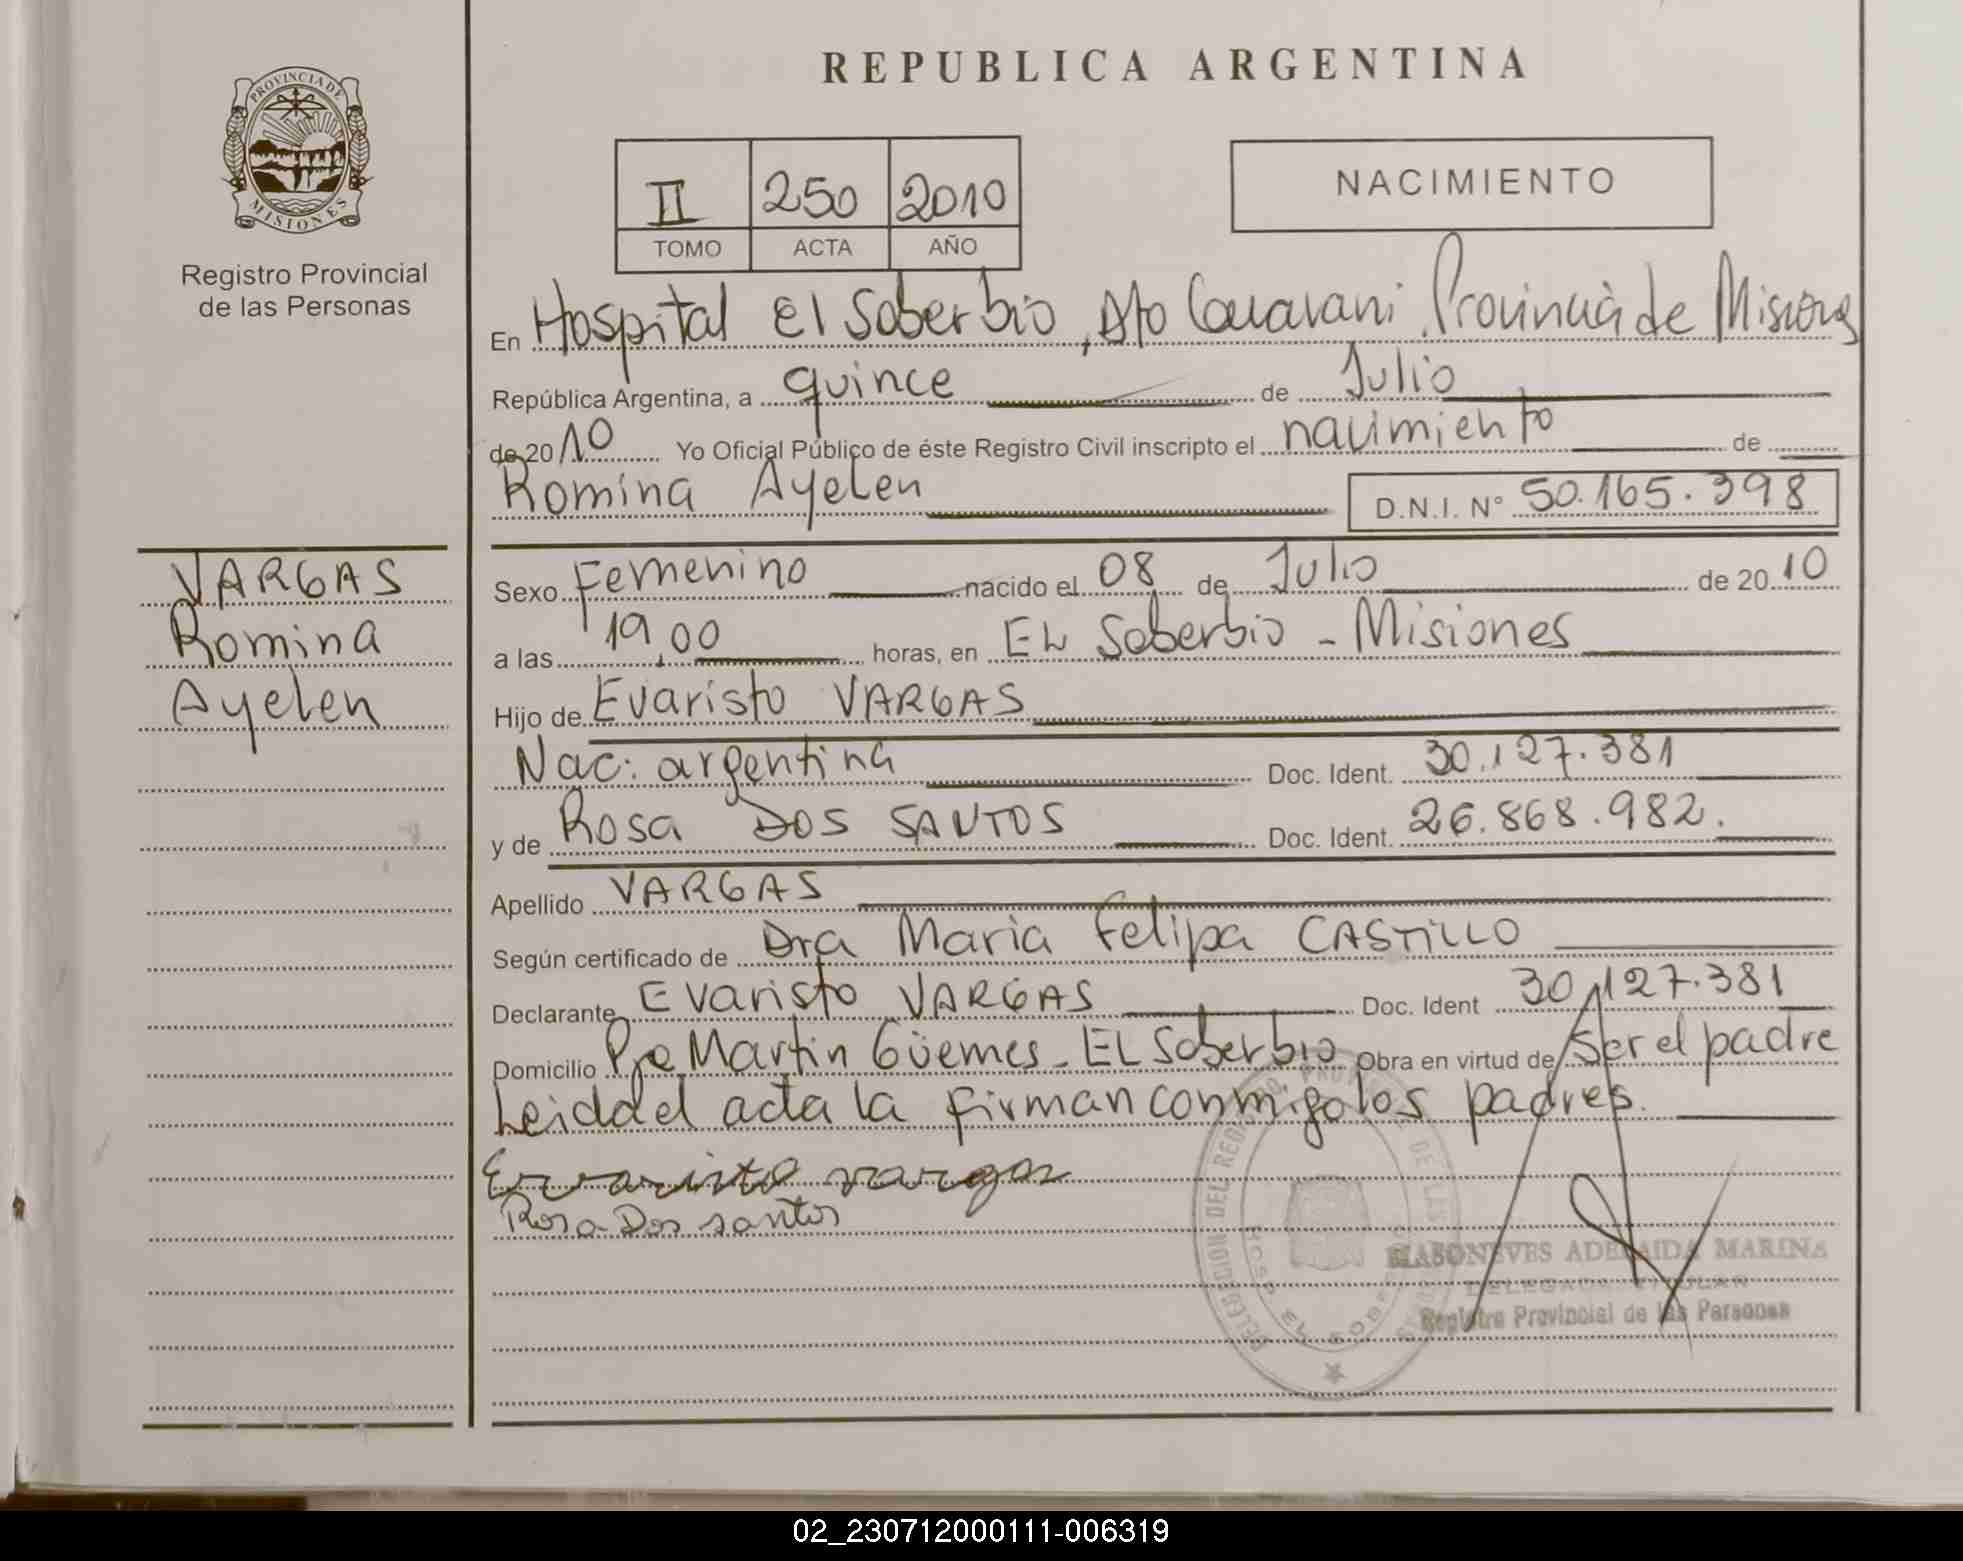 REPUBLICA ARGENTINA
PROVINCIA DE
MISIONES
Registro Provincial
de las Personas
II 250 2010
TOMO ACTA AÑO
NACIMIENTO
En Hospital El Soberbio, Dto Guarani, Provincia de Misiones
República Argentina, a quince de Julio
de 2010 Yo Oficial Público de éste Registro Civil inscripto el nacimiento de
Romina Ayelen D.N.I. N° 50.165.398
VARGAS
Romina
Ayelen
Sexo Femenino nacido el 08 de Julio de 2010
a las 19,00 horas, en EL Soberbio - Misiones
Hijo de Evaristo VARGAS
Nac: argentina Doc. Ident. 30.127.381
y de Rosa DOS SANTOS Doc. Ident. 26.868.982.
Apellido VARGAS
Según certificado de Dra Maria Felipa CASTILLO
Declarante Evaristo VARGAS Doc. Ident 30.127.381
Domicilio Martin Güemes - EL Soberbio Obra en virtud de Ser el padre
Leida el acta la firman conmigo los padres.
Evaristo vargas
Rosa Dos santos
ADELAIDA MARINA
DELEGADA TITULAR
Registro Provincial de las Personas
02_230712000111-006319